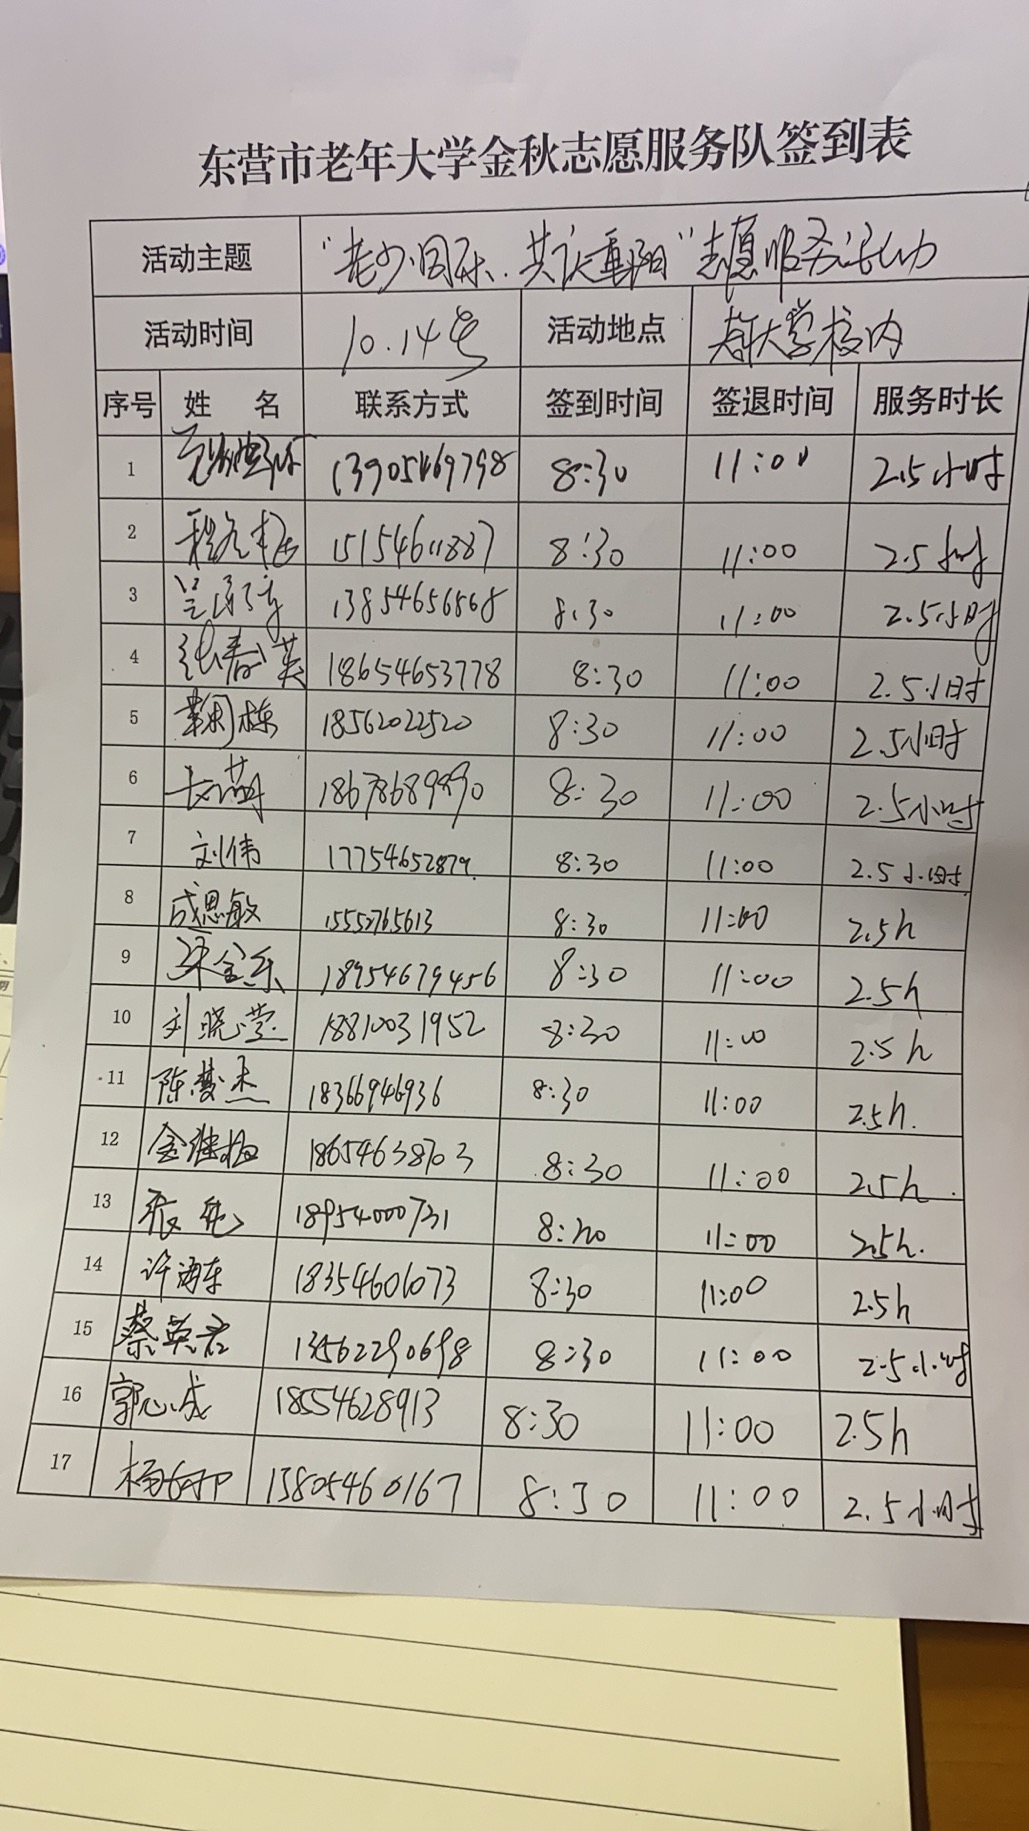 东营市老年大学金秋志愿服务队签到表
活动主题 “老少同乐、共庆重阳”志愿服务活动
活动时间 10.14号 活动地点 老年大学校内
序号 姓 名 联系方式 签到时间 签退时间 服务时长
1 13905469798 8:30 11:00 2.5小时
2 8:30 11:00 2.5小时
3 13854656868 8:30 11:00 2.5小时
4 张春英 18654653778 8:30 11:00 2.5小时
5 18562022520 8:30 11:00 2.5小时
6 8:30 11:00 2.5小时
7 刘伟 17754652879 8:30 11:00 2.5小时
8 成恩敏 15552765613 8:30 11:00 2.5h
9 18954679456 8:30 11:00 2.5h
10 刘晓莹 18810031952 8:30 11:00 2.5h
11 陈梦杰 18366946936 8:30 11:00 2.5h.
12 18654638703 8:30 11:00 2.5h.
13 18954000731 8:30 11:00 2.5h.
14 许海东 18354606073 8:30 11:00 2.5h
15 蔡英君 13562290698 8:30 11:00 2.5小时
16 郭心成 18554628913 8:30 11:00 2.5h
17 13805460167 8:30 11:00 2.5小时